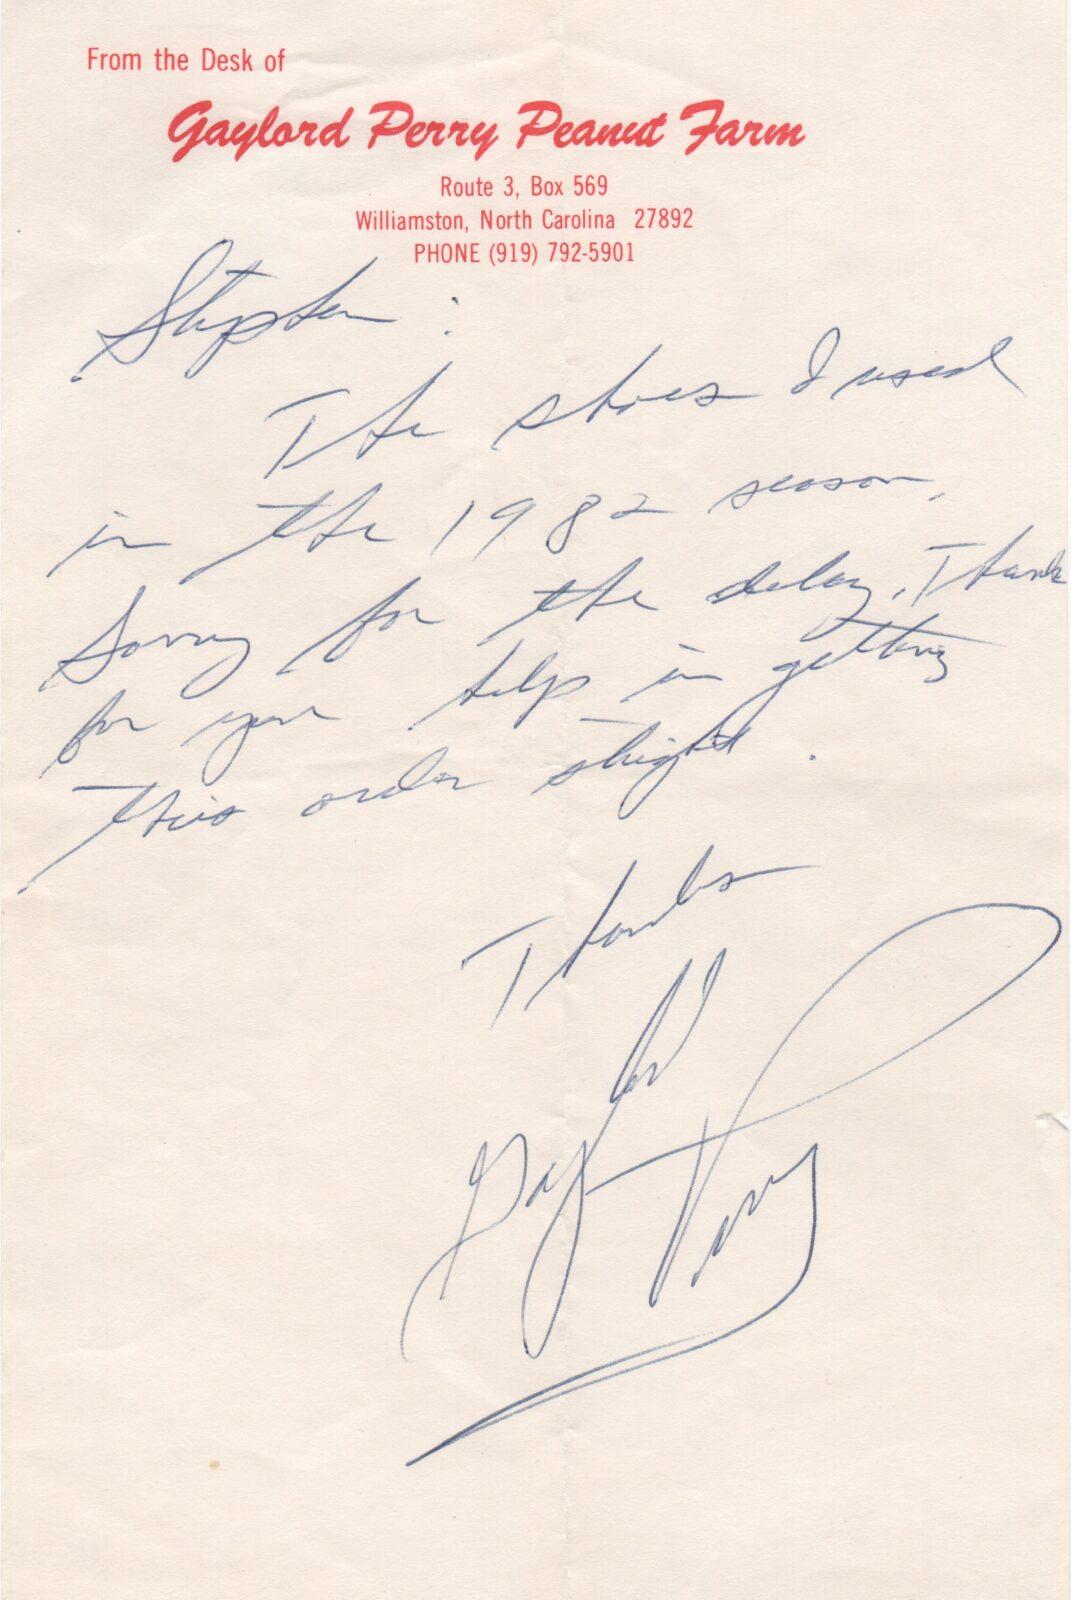 From the Desk of
Gaylord Perry Peanut Farm
Route 3, Box 569
Williamston, North Carolina 27892
PHONE (919) 792-5901
Stephen :
The shoes I used
in the 1982 season.
Sorry for the delay. Thank
for your help in getting
this order
Thanks
Gaylord Perry